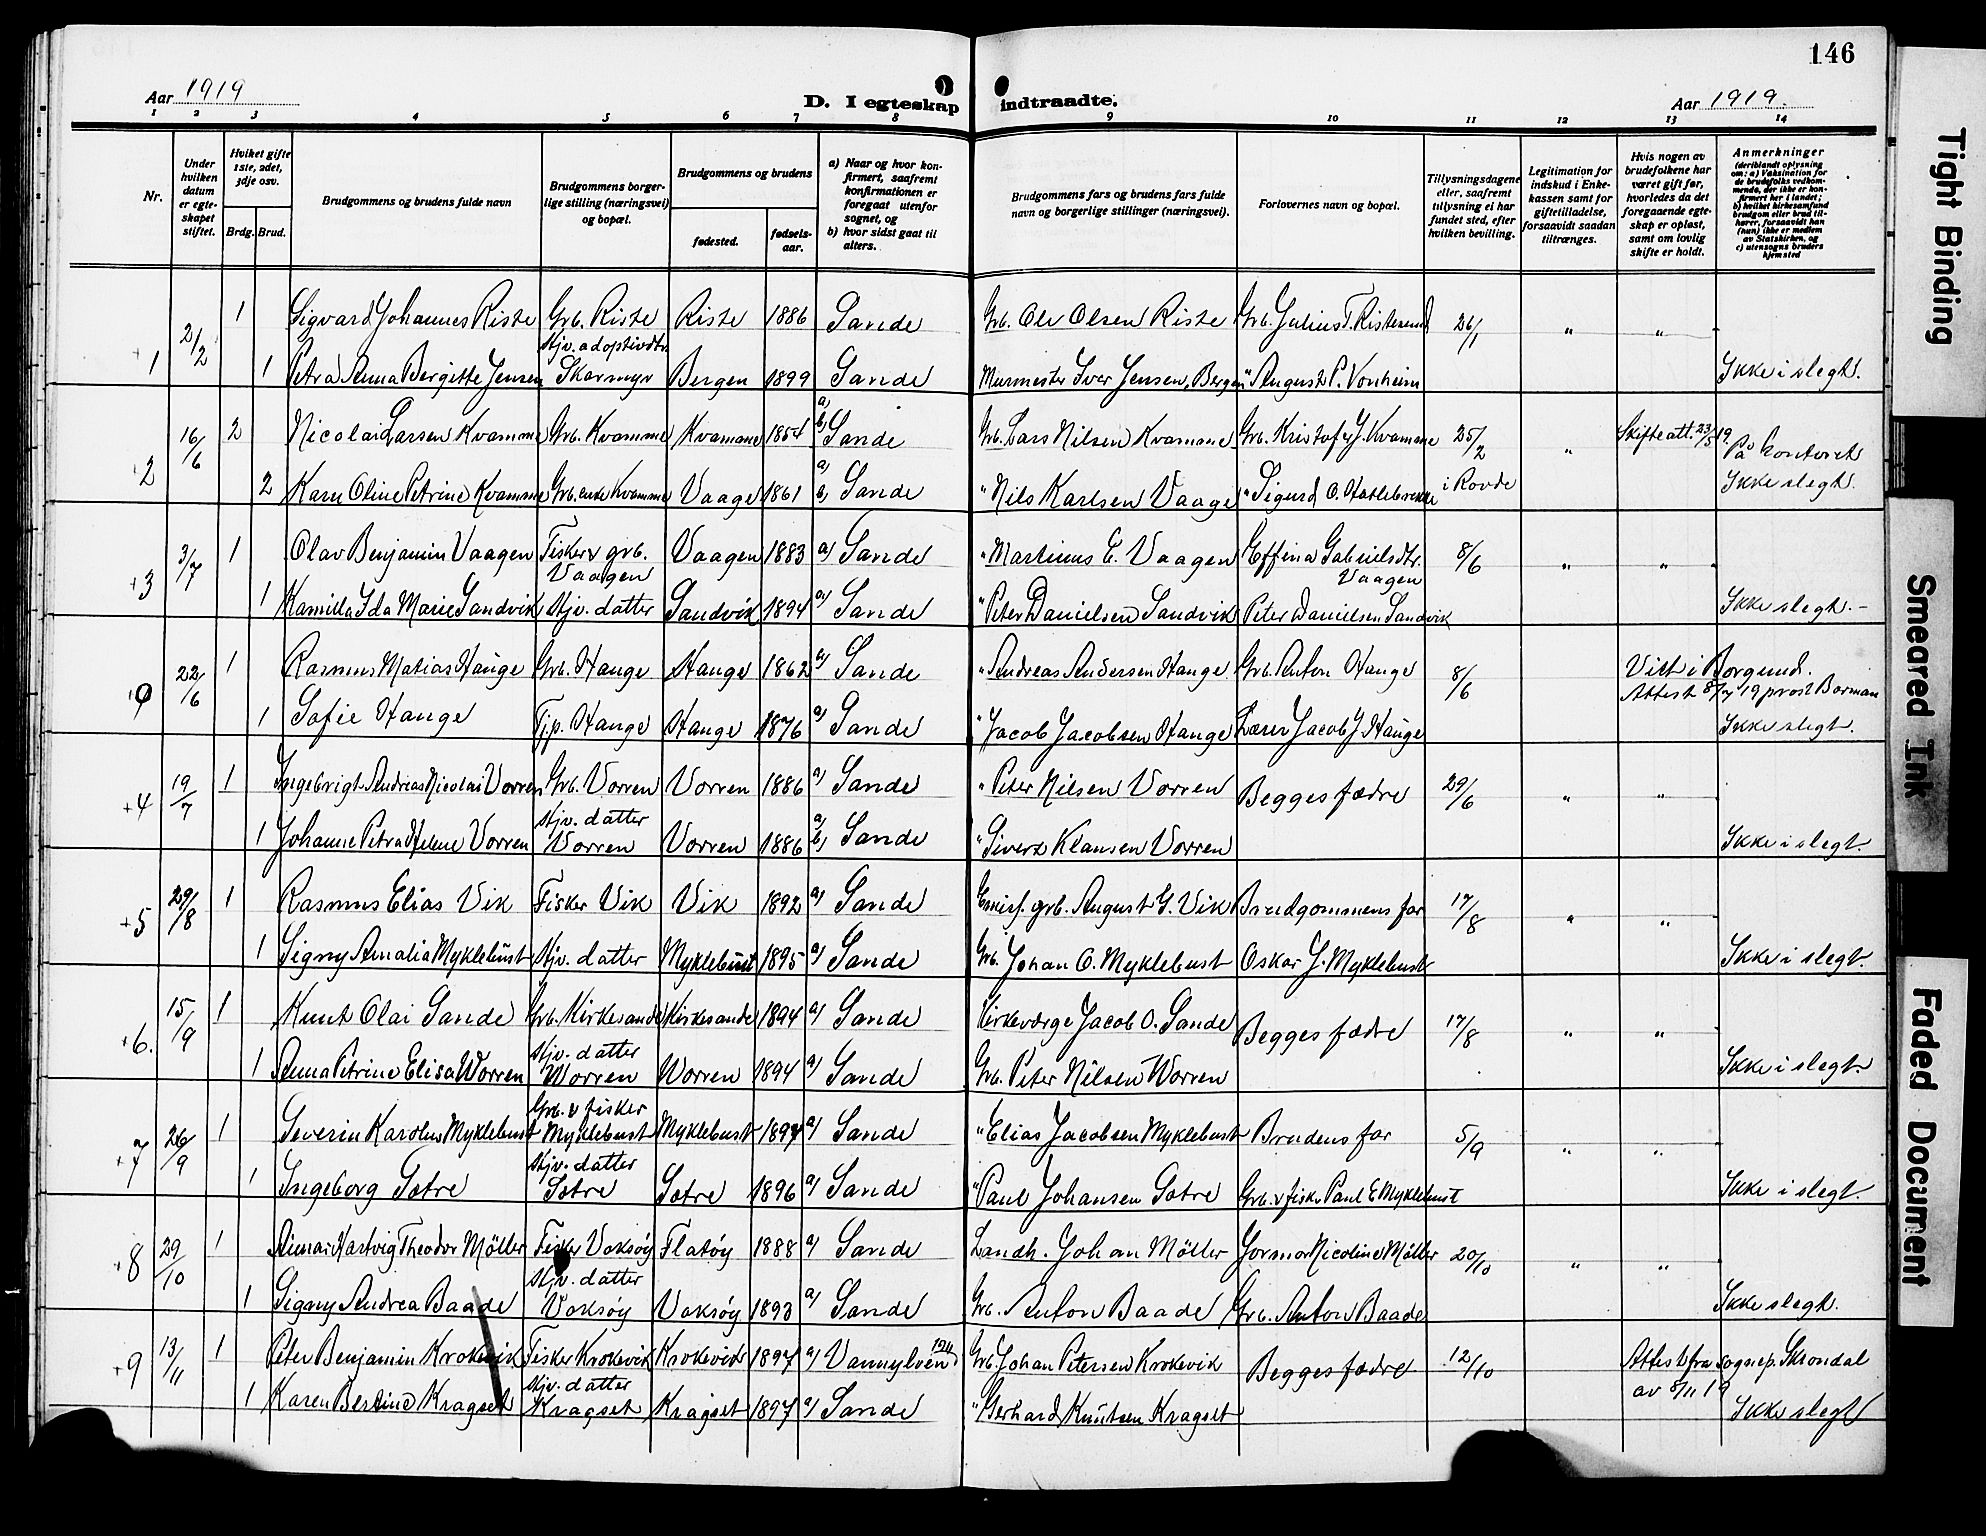 146
Aar 1919
D. I egteskap indtraadte.
Aar 1919.
1 2 3 4 5 6 7 8 9 10 11 12 13 14
Nr.
Under hvilken datum er egteskapet stiftet.
Hvilket gifte 1ste, 2det, 3dje osv.
Brdg. Brud.
Brudgommens og brudens fulde navn
Brudgommens borgerlige stilling (næringsvei) og bopæl.
Brudgommens og brudens
fødested.
fødselsaar.
a) Naar og hvor konfirmert, saafremt konfirmationen er foregaat utenfor sognet, og
b) hvor sidst gaat til alters.
Brudgommens fars og brudens fars fulde navn og borgerlige stillinger (næringsvei).
Forlovernes navn og bopæl.
Tillysningsdagene eller, saafremt tillysning ei har fundet sted, efter hvilken bevilling.
Legitimation for indskud i Enkekassen samt for giftetilladelse, forsaavidt saadan tiltrænges.
Hvis nogen av brudefolkene har været gift før, hvorledes da det foregaaende egteskap er opløst, samt om lovlig skifte er holdt.
Anmerkninger (deriblandt oplysning om: a) Vaksination for de brudefolks vedkommende, der ikke er konfirmert her i landet; b) hvilket kirkesamfund brudgom eller brud tilhører, forsaavidt han (hun) ikke er medlem av Statskirken, og c) utensogns bruders hjemsted
1 2/2 1 Sigvard Johannes Riste Grb. Riste Riste 1886 Sande Grb. Ole Olsen Riste Grb. Julius T. Ristesund 26/1 " "
1 Petra Anna Bergitte Jensen Stjv. adoptivdtr. Skarmyr Bergen 1899 Sande Murmester Iver Jensen, Bergen " August P. Vonheim Ikke i slegt.
+2 16/6 2 Nicolai Larsen Kvamme Grb. Kvamme Kvamme 1854 a) b) Sande Grb. Lars Nilsen Kvamme Grb. Kristofer J. Kvamme 25/2 " Skifteatt. 23/5 19. På kontoret
2 Karen Oline Petrine Kvamme Grb. enke Kvamme Vaage 1861 a) b) Sande " Nils Karlsen Vaage " Sigurd O. Hatlebrekke i Rovde Ikke slegt.
+3 3/7 1 Olav Benjamin Vaagen Fisker & grb. Vaagen Vaagen 1883 a) Sande " Martinus E. Vaagen Effina Gabrielsdtr. Vaagen 8/6 " " "
1 Kamilla Ida Marie Sandvik Stjv. datter Sandvik 1894 a) Sande " Peter Danielsen Sandvik Peter Danielsen Sandvik Ikke slegt.-
22/6 1 Rasmus Matias Hauge Grb. Hauge Hauge 1862 a) Sande " Andreas Andersen Hauge Grb. Anton Hauge 8/6 Viet i Borgund. Attest 8/7 19 prost Borman
1 Sofie Hauge Tjp. Hauge Hauge 1876 a) Sande " Jacob Jacobsen Hauge Lærer Jacob J. Hauge Ikke slegt.
+4 19/7 1 Ingebrigt Andreas Nicolai Vorren Grb. Vorren Vorren 1886 a) Sande " Peter Nilsen Vorren Begges fædre 29/6 " "
1 Johanne Petra Helene Vorren Stjv. datter Vorren Vorren 1886 a) b) Sande " Sivert Klausen Vorren Ikke i slegt.
+5 29/8 1 Rasmus Elias Vik Fisker Vik Vik 1892 a) Sande Emisj. grb. August G. Vik Brudgommens far 17/8 " "
1 Signy Amalia Myklebust Stjv. datter Myklebust 1895 a) Sande Grb. Johan O. Myklebust Oskar J. Myklebust Ikke i slegt.
+6. 15/9 1 Knut Olai Sande Grb. Kirkesande Kirkesande 1894 a) Sande Kirkeværge Jacob O. Sande Begges fædre 17/8 " "
1 Anna Petrine Elisa Worren Stjv. datter Worren Worren 1894 a) Sande Grb. Peter Nilsen Worren Ikke i slegt.
+7 26/9 1 Severin Karolus Myklebust Grb. & fisker Myklebust Myklebust 1894 a) Sande " Elias Jacobsen Myklebust Brudens far 5/9 " "
1 Ingeborg Sætre Stjv. datter Sætre Sætre 1896 a) Sande " Paul Johansen Sætre Grb. & fisker Paul E Myklebust Ikke i slegt.
+8 29/10 1 Hartvig Theodor Möller Fisker Voksøy Flatøy 1888 a) Sande Landh. Johan Möller Jormor Nicoline Möller 20/10 " "
1 Signy Andrea Baade Stjv. datter Voksøy Voksøy 1893 a) Sande Grb. Anton Baade Grb. Anton Baade Ikke slegt.
+9 13/11 1 Peter Benjamin Krokevik Fisker Krokevik Krokevik 1897 a) Vannylven Grb. Johan Petersen Krokevik Begges fædre 12/10 Attest fra sognep. Skrondal av 8/11 19
1 Karen Bertine Kragset Stjv. datter Kragset Kragset 1897 a) Sande " Gerhard Knutsen Kragset Ikke slegt
Tight Binding
Smeared Ink
Faded Document